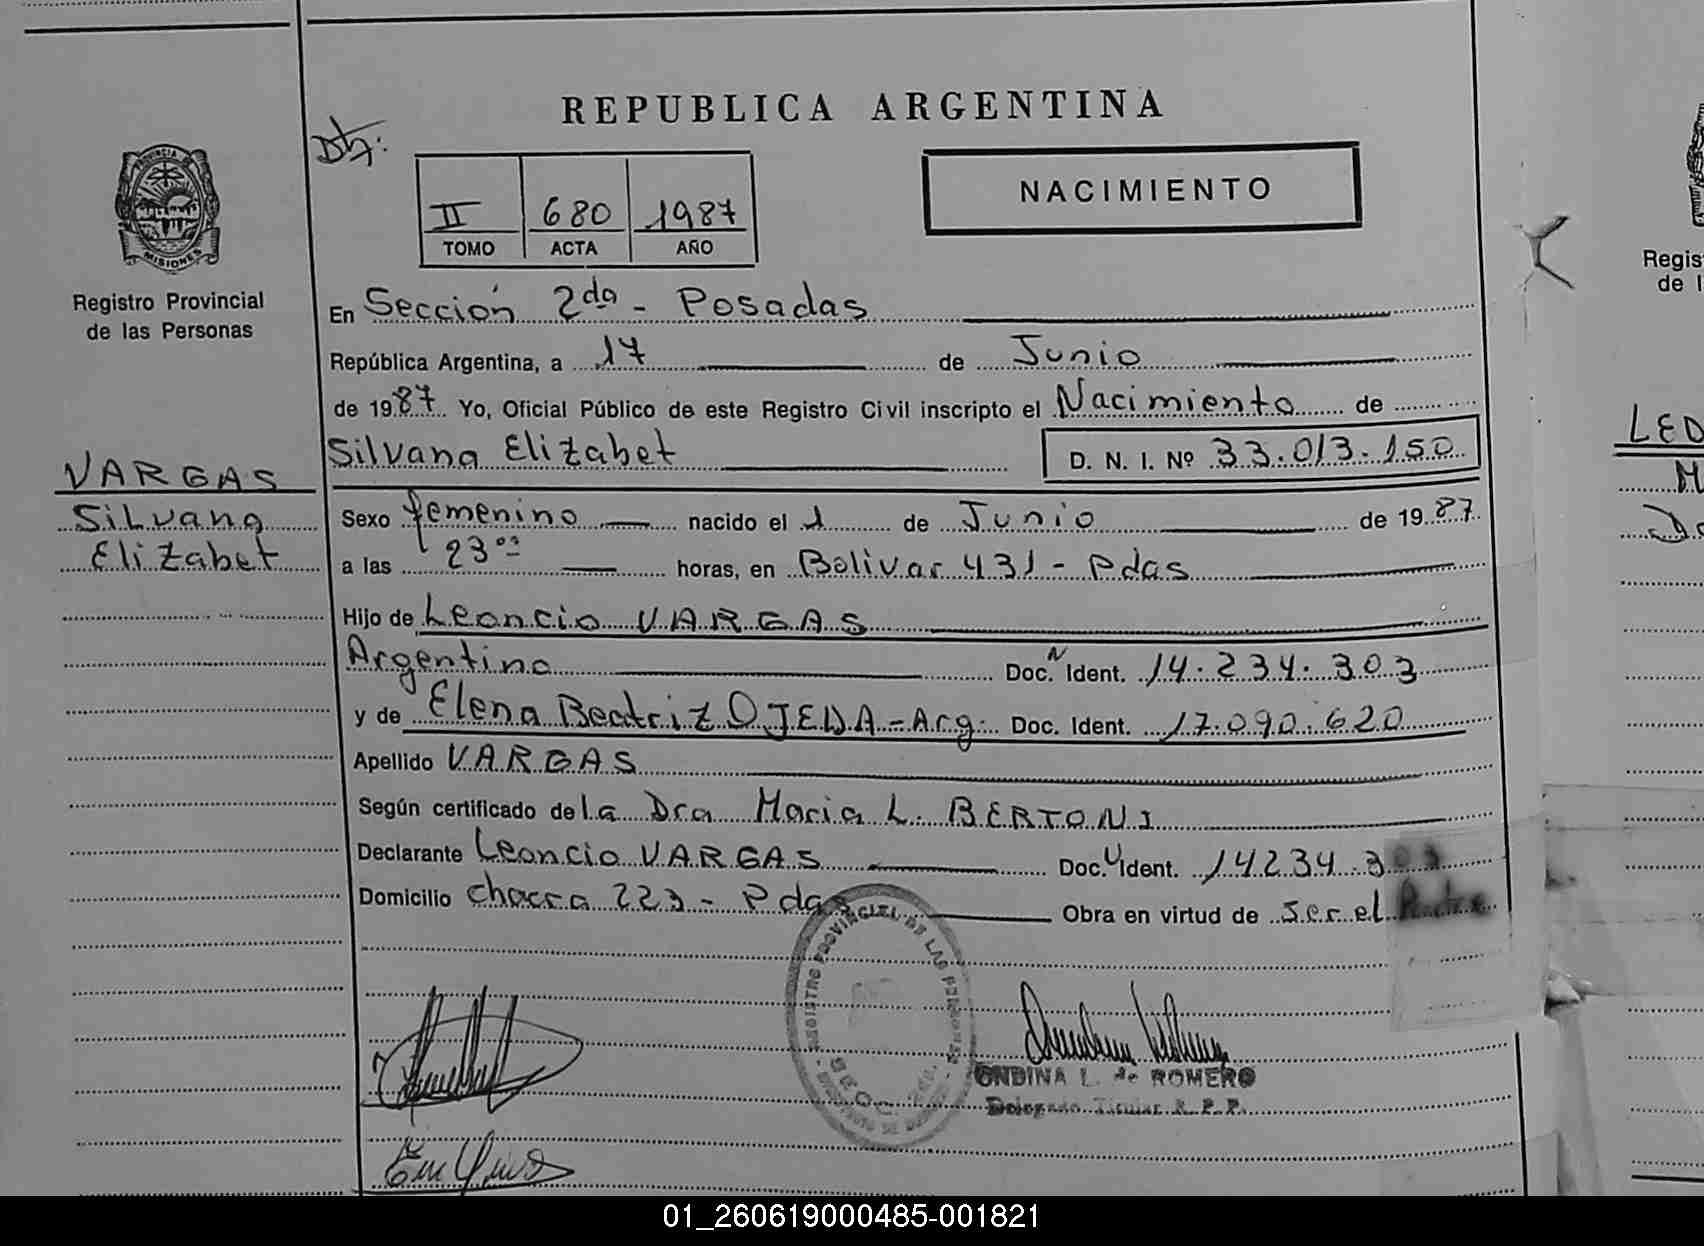 REPUBLICA ARGENTINA
PROVINCIA DE
MISIONES
Registro Provincial
de las Personas
II 680 1987
TOMO ACTA AÑO
NACIMIENTO
En Sección 2da - Posadas
República Argentina, a 17 de Junio
de 1987 Yo, Oficial Público de este Registro Civil inscripto el Nacimiento de
Silvana Elizabet D. N. I. Nº 33.013.150
VARGAS
Silvana
Elizabet
Sexo femenino nacido el 1 de Junio de 1987
a las 23 horas, en Bolivar 431 - Pdas
Hijo de Leoncio VARGAS
Argentino Doc. N Ident. 14.234.303
y de Elena Beatriz OJEDA - Arg. Doc. Ident. 17.090.620
Apellido VARGAS
Según certificado de la Dra Maria L. BERTONI
Declarante Leoncio VARGAS Doc. Ident. 14234.303
Domicilio Chacra 223 - Pdas Obra en virtud de ser el Padre
REGISTRO PROVINCIAL DE LAS PERSONAS
ONDINA L. de ROMERO
Delegado Titular R. P. P.
Regis
de l
LED
M
01_260619000485-001821